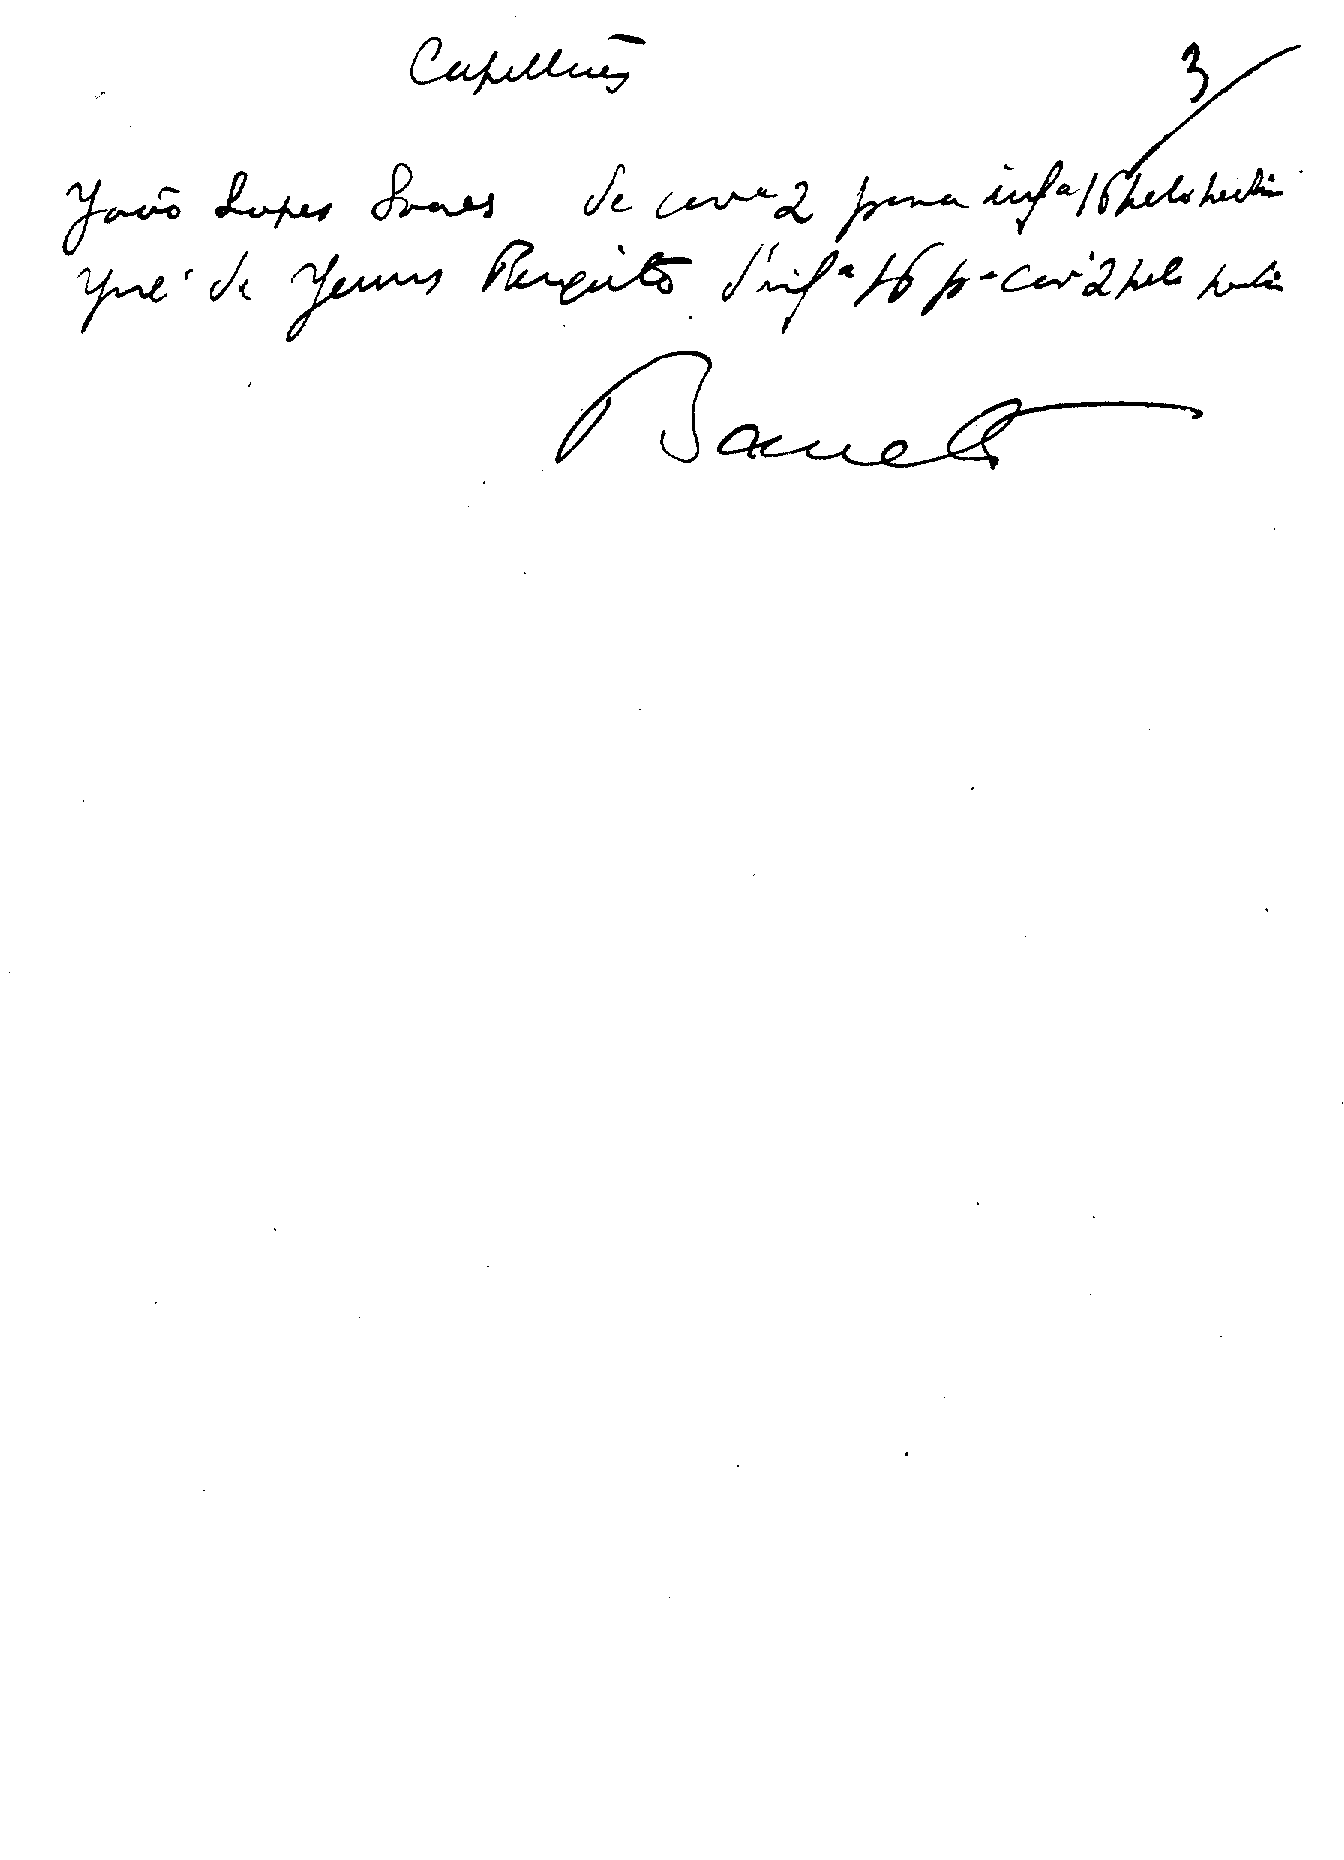 Capellães
3
João Lopes Soares de cavª 2 para infª 16 pelo pedir
José de Jesus d'infª 16 pª cavª 2 pelo pedir
Barreto